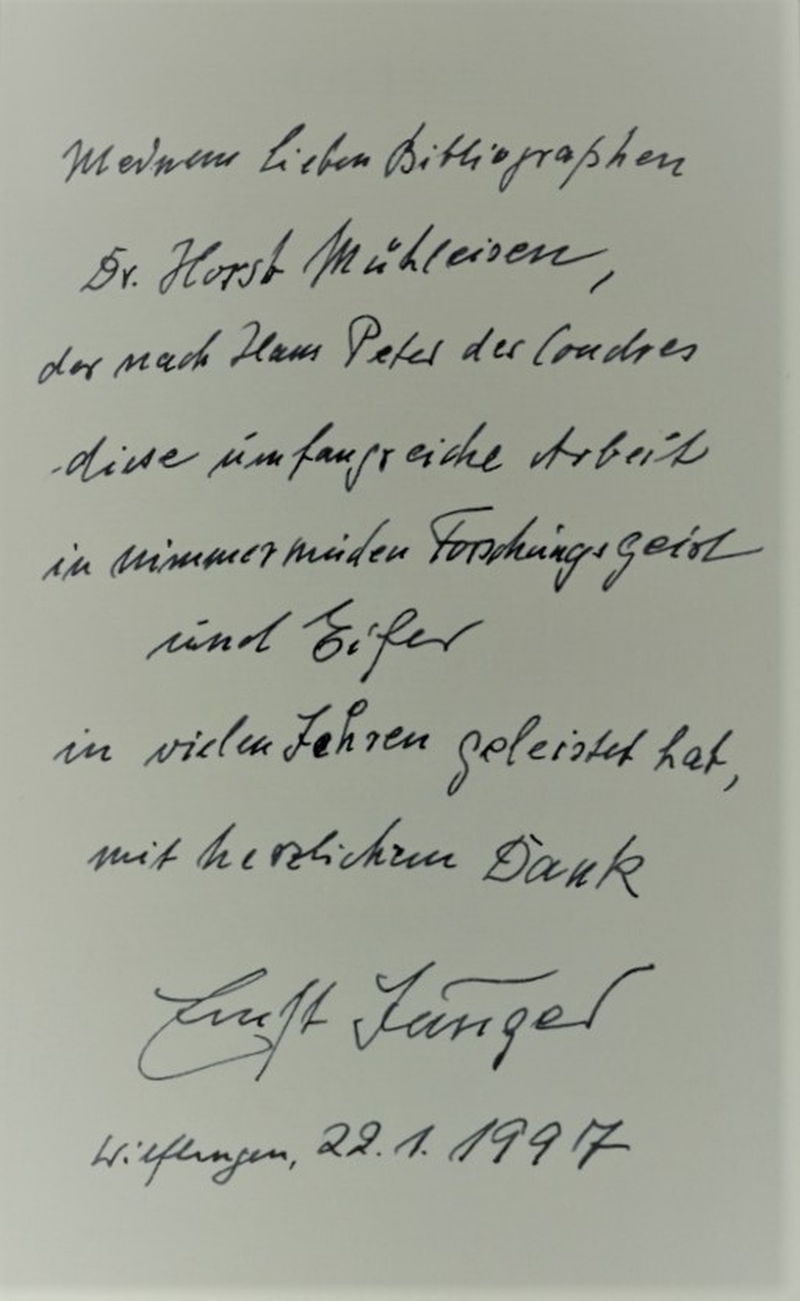 Meinem lieben Bibliographen
Dr. Horst Mühleisen,
der nach Hans Peter des Coudres
diese umfangreiche Arbeit
in nimmermüden Forschungsgeist
und Eifer
in vielen Jahren geleistet hat,
mit herzlichem Dank
Ernst Jünger
Wilflingen, 22.1.1997